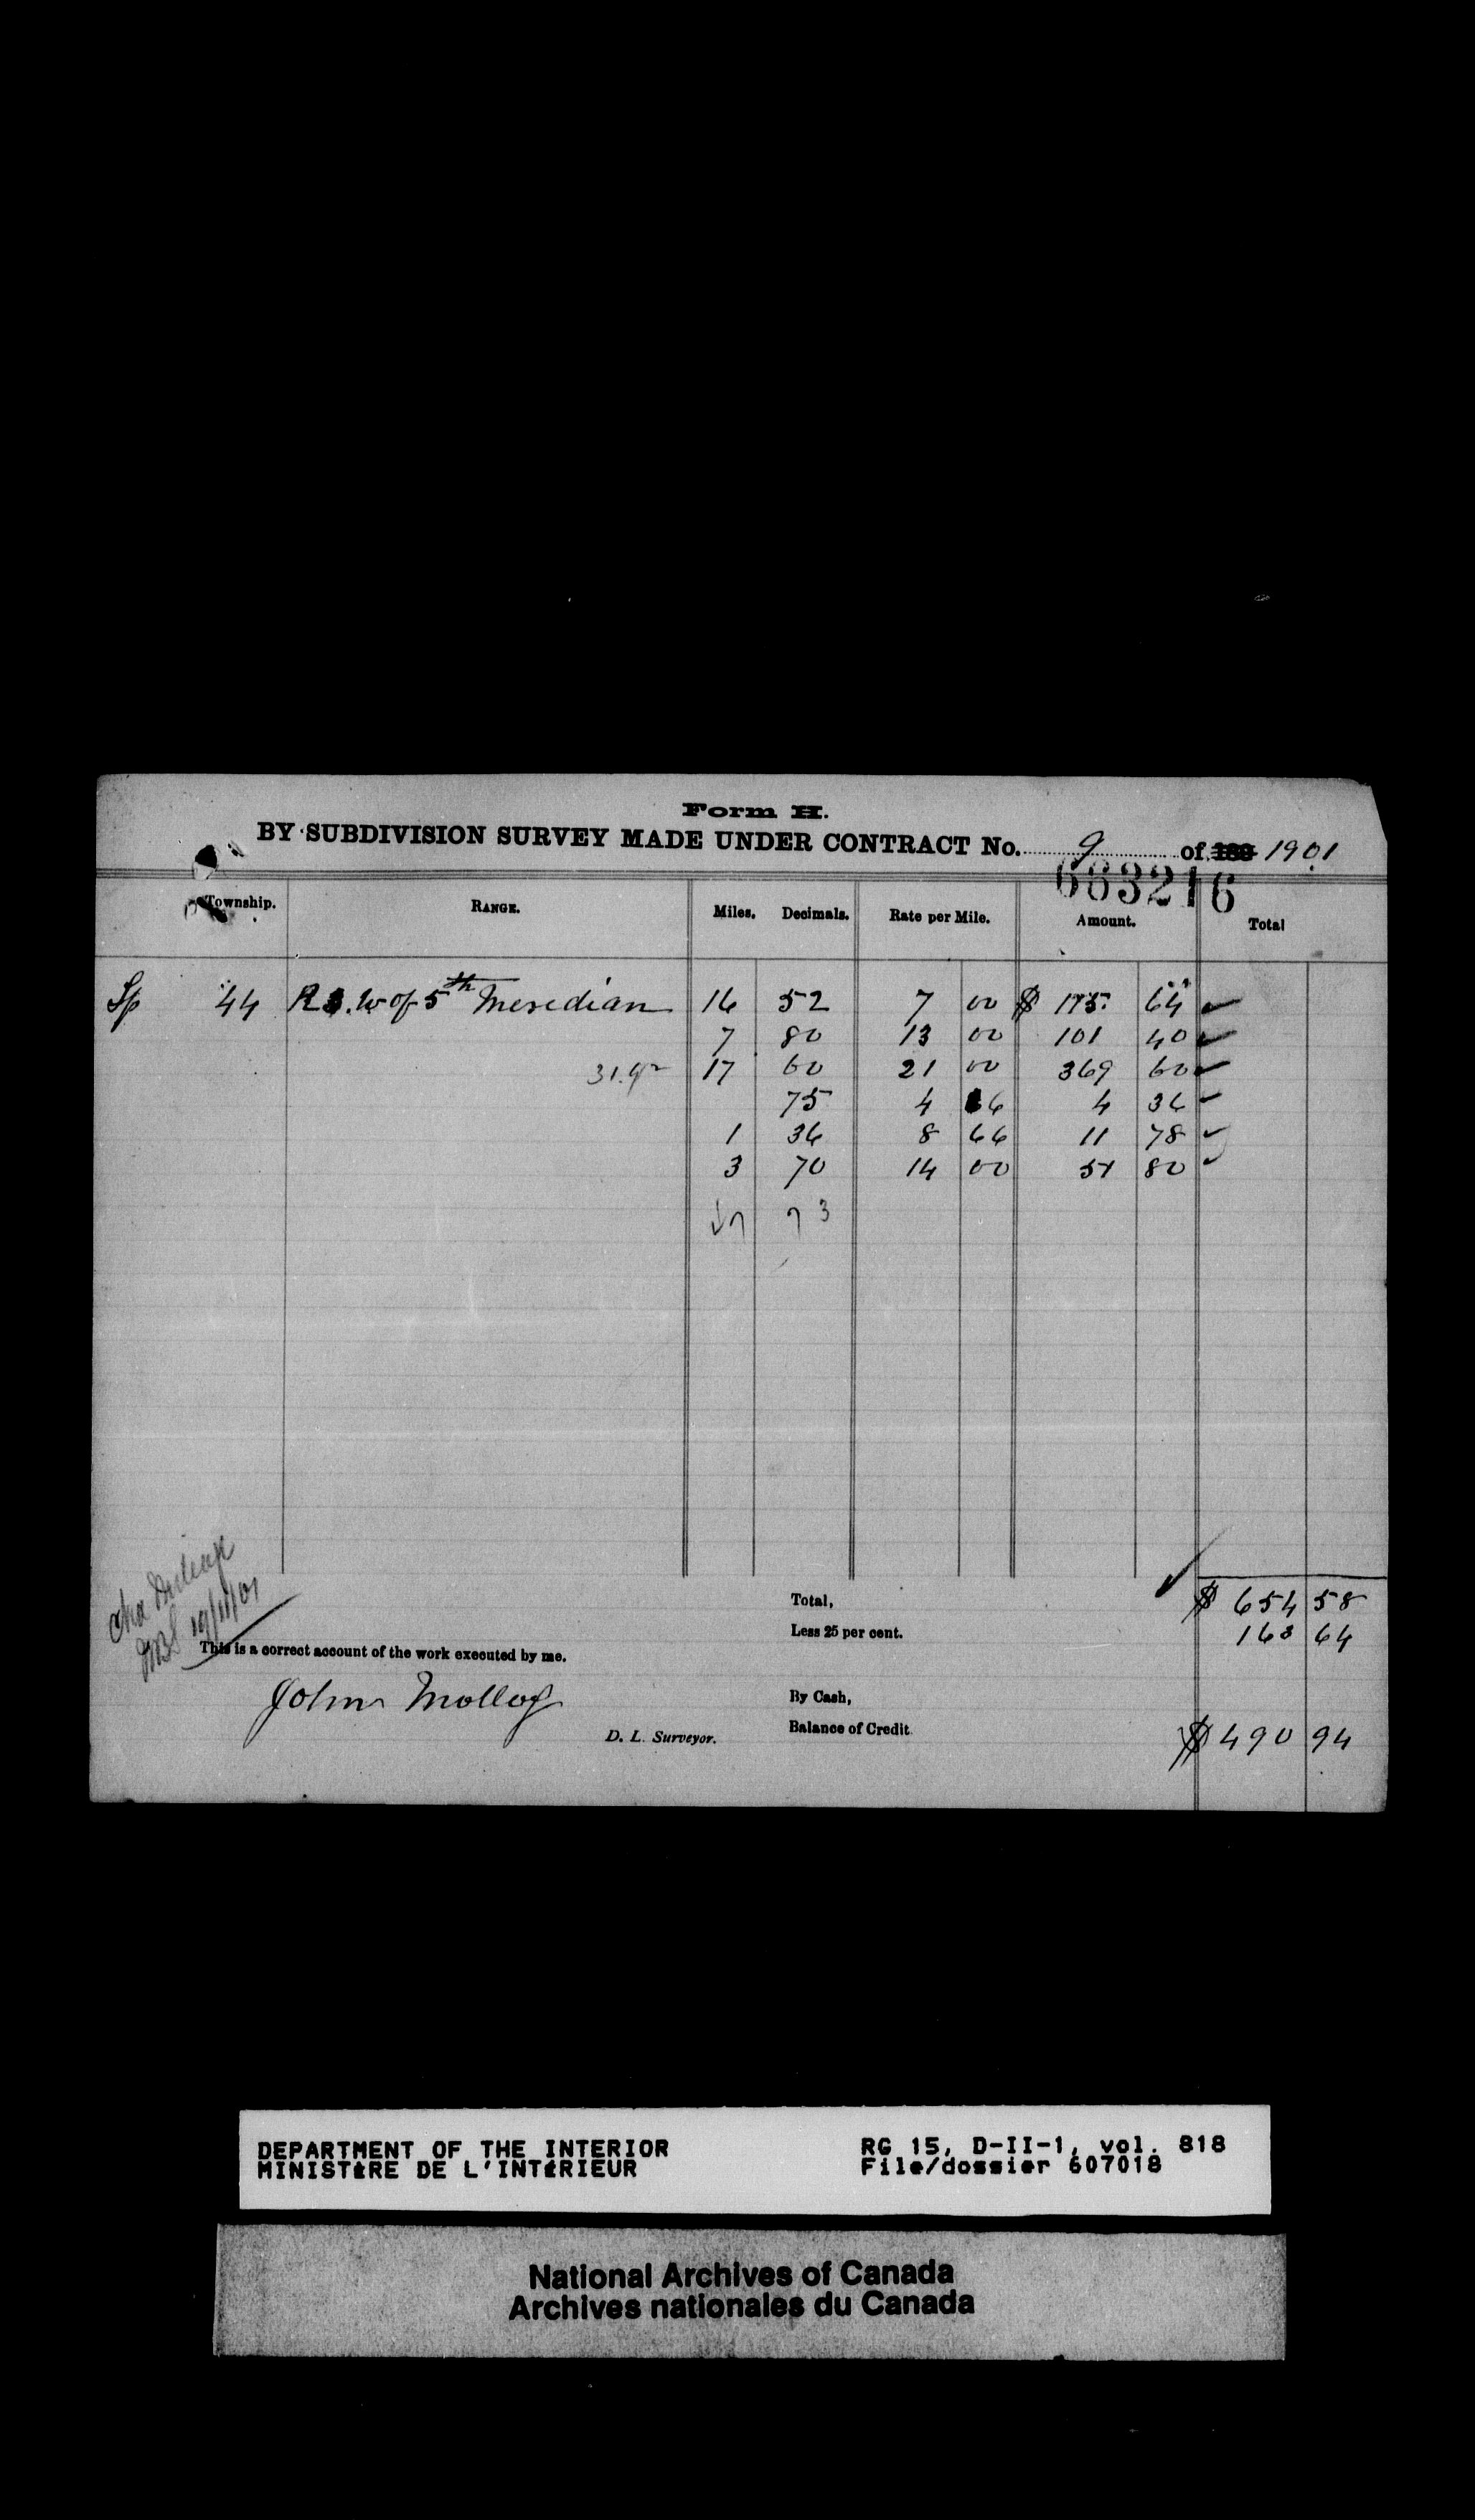 Form H.
BY SUBDIVISION SURVEY MADE UNDER CONTRACT No. 9 of 189 1901
663216
Township. RANGE. Miles. Decimals. Rate per Mile. Amount. Total
Tp 44 R 3. W of 5th Meridian 16 52 7 00 $ 115. 64
7 80 13 00 101 40
31.92 17 60 21 00 369 60
75 4 66 4 36
1 36 8 66 11 78
3 70 14 00 51 80
73
Total, $ 654 58
Less 25 per cent. 163 64
19/11/01
This is a correct account of the work executed by me.
John Molloy
By Cash,
D. L. Surveyor.
Balance of Credit $ 490 94
DEPARTMENT OF THE INTERIOR RG 15, D-II-1, vol. 818
MINISTÈRE DE L'INTÉRIEUR File/dossier 607018
National Archives of Canada
Archives nationales du Canada